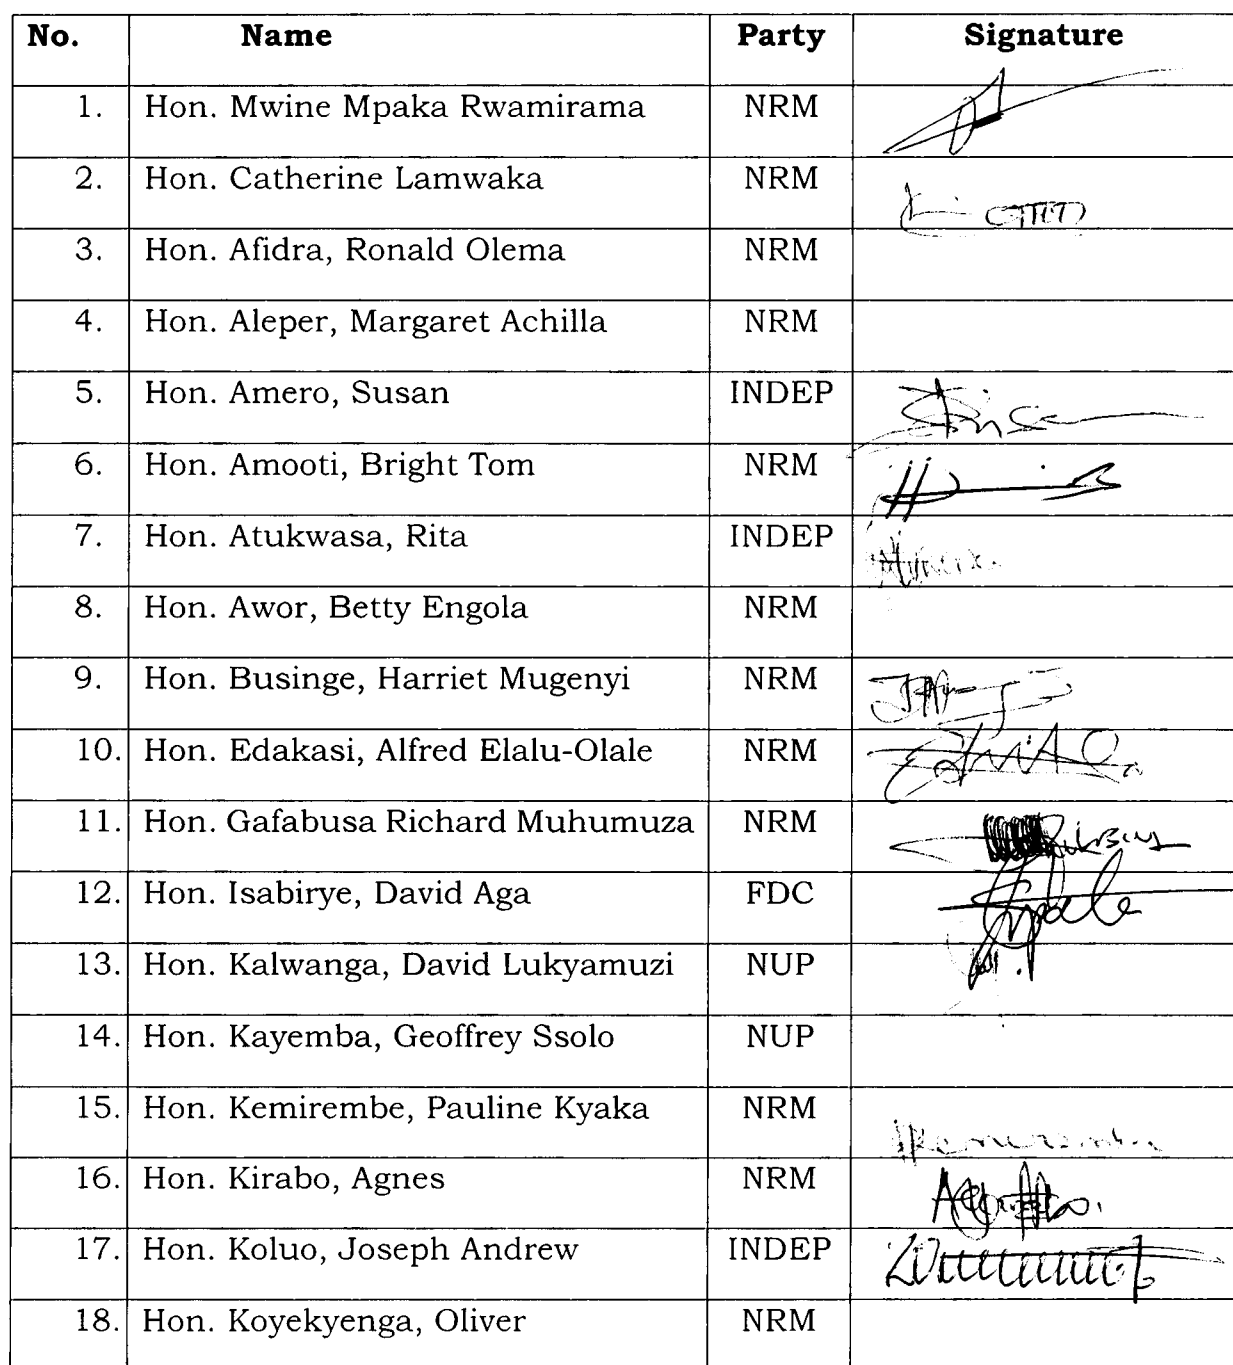 No. Name Party Signature
1. Hon. Mwine Mpaka Rwamirama NRM
2. Hon. Catherine Lamwaka NRM
3. Hon. Afidra, Ronald Olema NRM
4. Hon. Aleper, Margaret Achilla NRM
5. Hon. Amero, Susan INDEP
6. Hon. Amooti, Bright Tom NRM
7. Hon. Atukwasa, Rita INDEP
8. Hon. Awor, Betty Engola NRM
9. Hon. Businge, Harriet Mugenyi NRM
10. Hon. Edakasi, Alfred Elalu-Olale NRM
11. Hon. Gafabusa Richard Muhumuza NRM
12. Hon. Isabirye, David Aga FDC
13. Hon. Kalwanga, David Lukyamuzi NUP
14. Hon. Kayemba, Geoffrey Ssolo NUP
15. Hon. Kemirembe, Pauline Kyaka NRM
16. Hon. Kirabo, Agnes NRM
17. Hon. Koluo, Joseph Andrew INDEP
18. Hon. Koyekyenga, Oliver NRM